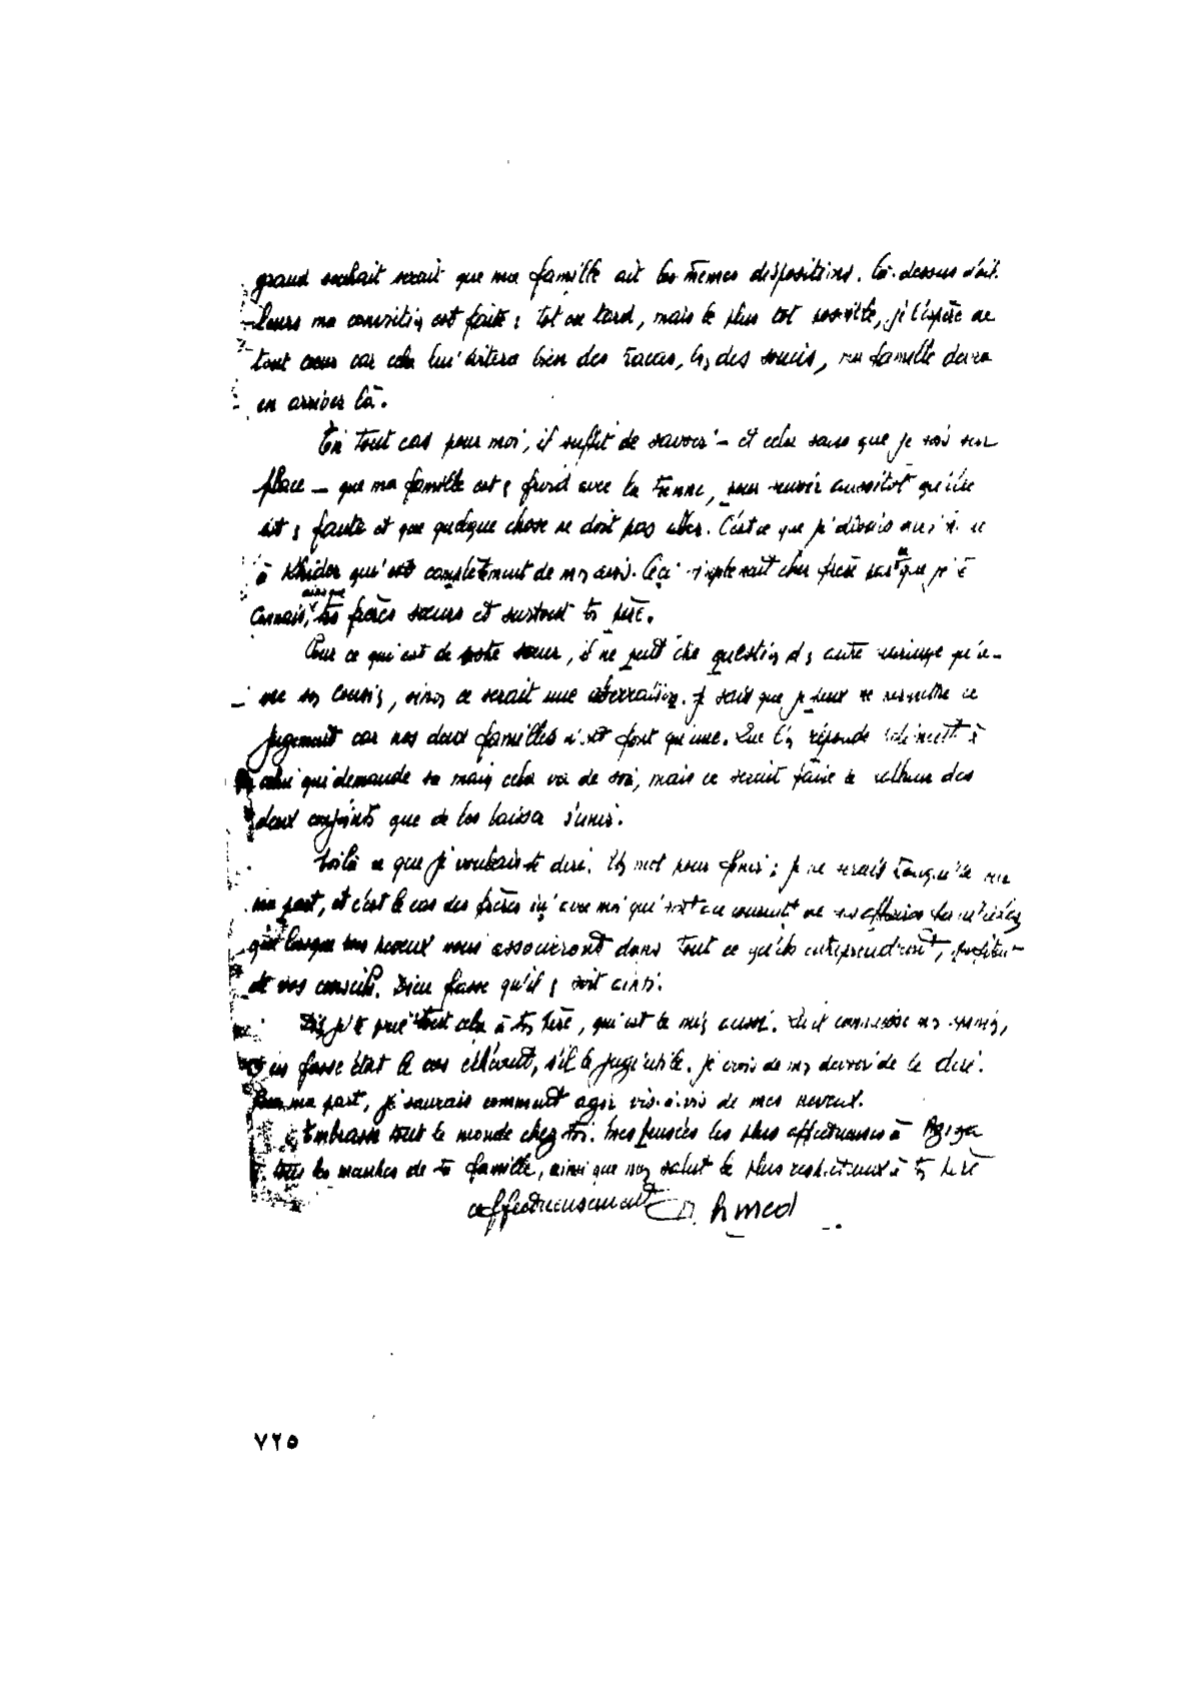 grand souhait serait que ma famille ait les mêmes dispositions. Là-dessus d'ail-
leurs ma conviction est faite : tôt ou tard, mais le plus tôt possible, je l'espère de
tout cœur car cela lui évitera bien des tracas, bien des soucis, ma famille devra
en arriver là.
En tout cas pour moi, il suffit de savoir - et cela sans que je sois sur
place - que ma famille est en froid avec la tienne, pour aussitôt qu'elle
est en faute et que quelque chose ne doit pas aller. C'est ce que je disais
à Khider qui est complètement de mon avis. Ceci cher frère parce que je te
connais, ainsi que tes frères sœurs et surtout ton père.
Pour ce qui est de notre sœur, il ne peut être question d'un autre mariage qu'a-
vec son cousin, sinon ce serait une aberration. Je sais que je peux me permettre ce
jugement car nos deux familles n'en font qu'une. Que l'on réponde à
celui qui demande sa main cela va de soi, mais ce serait faire le malheur des
deux conjoints que de les laisser s'unir.
Voilà ce que je voulais te dire. Un mot pour finir : je ne serais tranquille
ma part, et c'est le cas des frères ici avec moi qui sont au courant de nos affaires
que lorsque mes neveux vous associeront dans tout ce qu'ils entreprendront,
de vos conseils. Dieu fasse qu'il en soit ainsi.
Dis je te prie tout cela à ton père, qui est le mien aussi. Qu'il connaisse mon opinion,
en fasse état le cas échéant, s'il le juge utile. Je crois de mon devoir de le dire.
Pour ma part, je saurais comment agir vis-à-vis de mes neveux.
Embrasse tout le monde chez toi. Mes pensées les plus affectueuses à Aziza
tous les membres de ta famille, ainsi que mon salut le plus respectueux à ton père
affectueusement Ahmed
٧٢٥